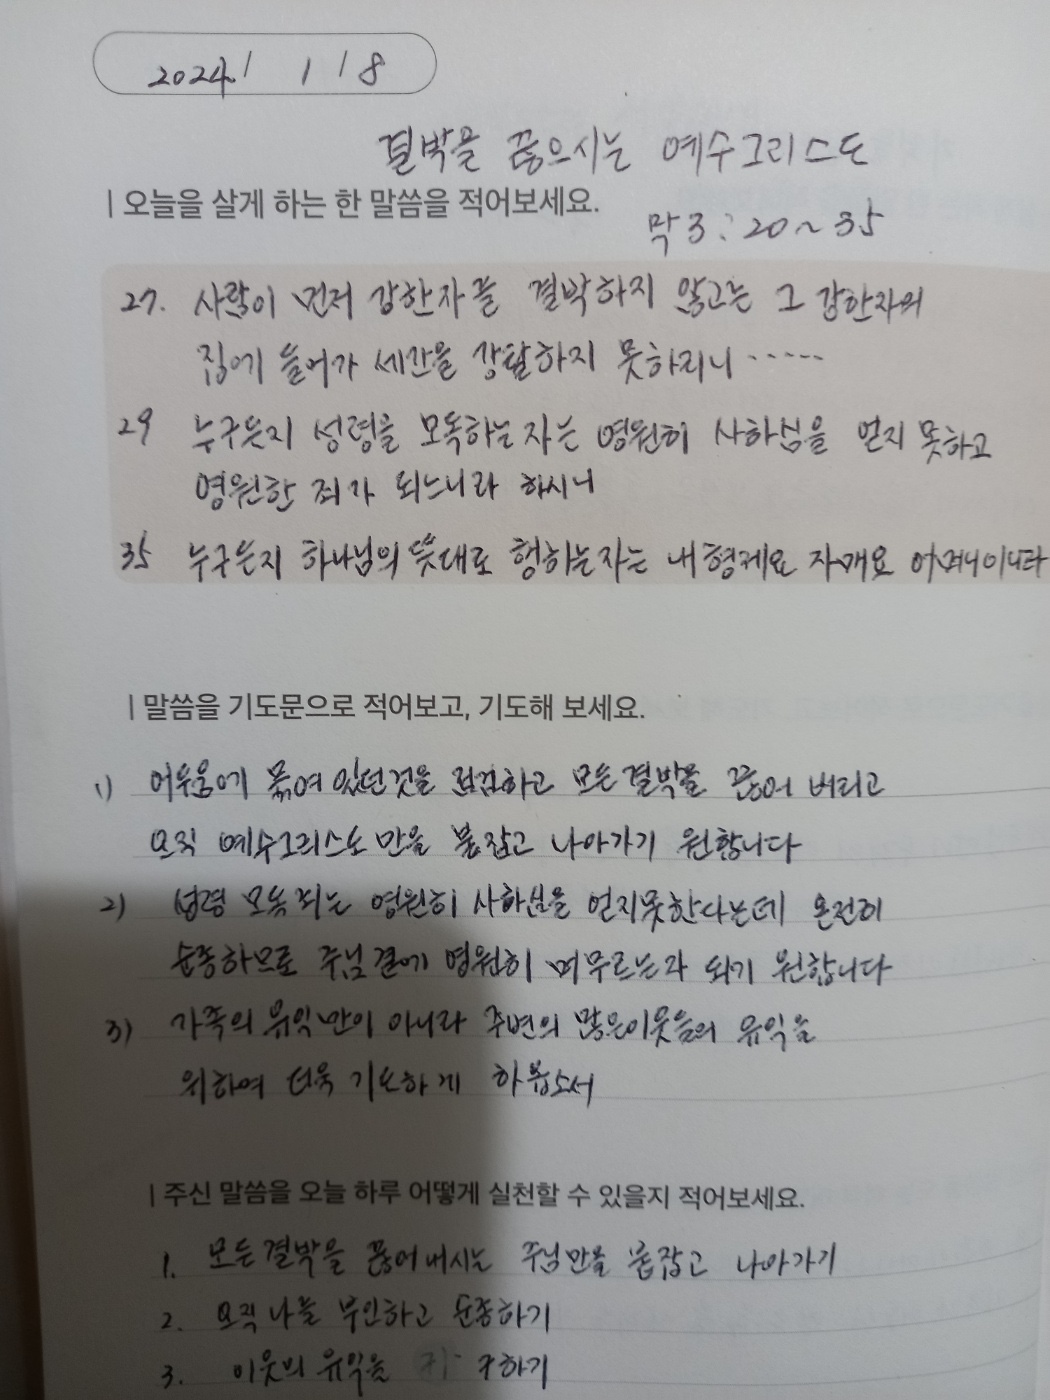 2024. / 1 / 8
결박을 끊으시는 예수그리스도
| 오늘을 살게 하는 한 말씀을 적어보세요.
막 3 : 20 ~ 35
27. 사람이 먼저 강한자를 결박하지 않고는 그 강한자의
집에 들어가 세간을 강탈하지 못하리니 ······
29 누구든지 성령을 모독하는 자는 영원히 사하심을 얻지 못하고
영원한 죄가 되느니라 하시니
35 누구든지 하나님의 뜻대로 행하는자는 내 형제요 자매요 어머니이니라
| 말씀을 기도문으로 적어보고, 기도해 보세요.
1) 어두움에 묶여 있던것을 점검하고 모든 결박을 끊어 버리고
오직 예수그리스도 만을 붙잡고 나아가기 원합니다
2) 성령 모독 죄는 영원히 사하심을 얻지못한다는데 온전히
순종하므로 주님 곁에 영원히 머무르는자 되기 원합니다
3) 가족의 유익만이 아니라 주변의 많은이웃들의 유익을
위하여 더욱 기도하게 하옵소서
| 주신 말씀을 오늘 하루 어떻게 실천할 수 있을지 적어보세요.
1. 모든 결박을 끊어 내시는 주님만을 붙잡고 나아가기
2. 오직 나를 부인하고 순종하기
3. 이웃의 유익을 구하기